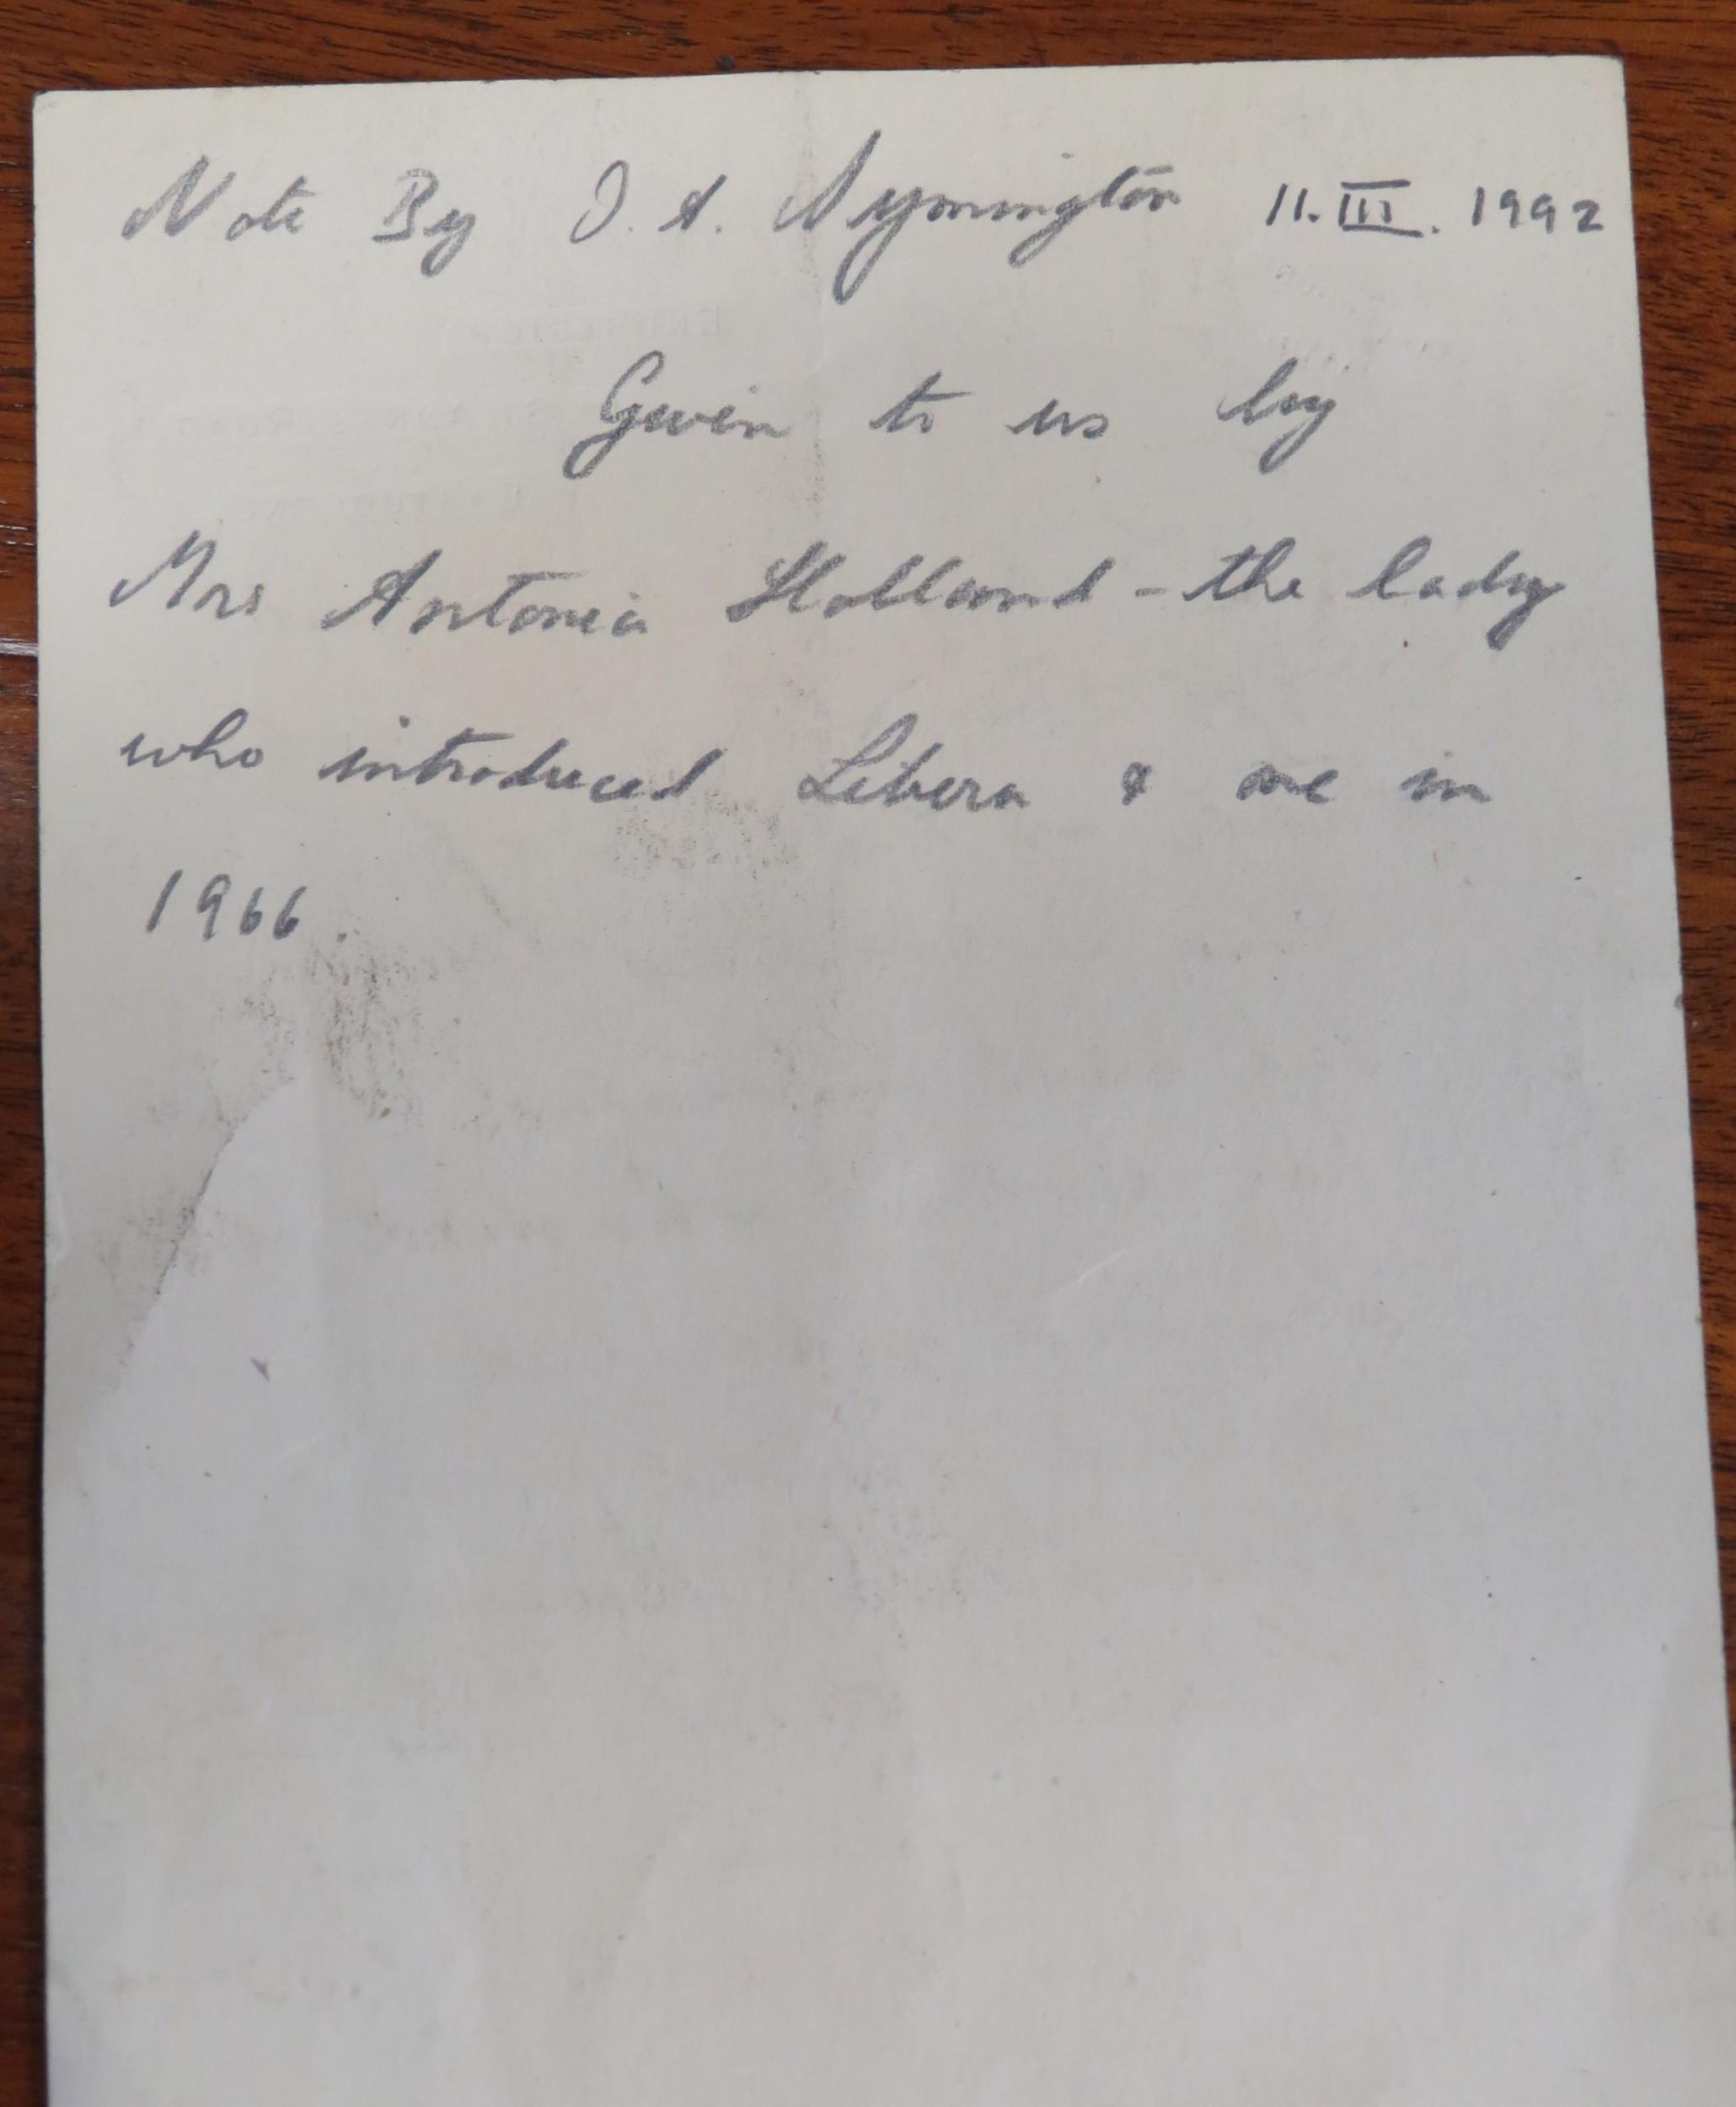 Note By J. A. Nymington 11.III.1992
Given to us by
Mrs Antonia Holland - the lady
who introduced Libera & me in
1966.